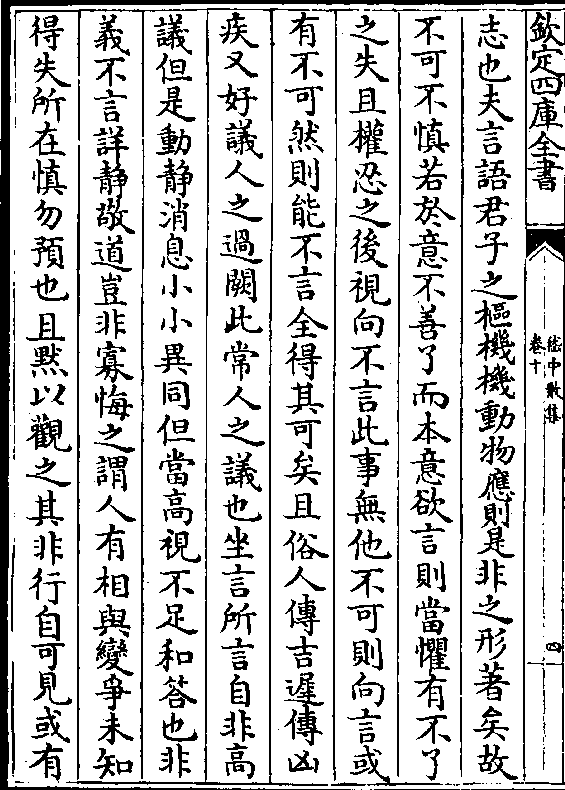 欽定四庫全書
嵇中散集
卷十
四
志也夫言語君子之樞機機動物應則是非之形著矣故
不可不慎若於意不善了而本意欲言則當懼有不了
之失且權忍之後視向不言此事無他不可則向言或
有不可然則能不言全得其可矣且俗人傳吉遲傳凶
疾又好議人之過闕此常人之議也坐言所言自非高
議但是動靜消息小小異同但當高視不足和答也非
義不言詳靜敬道豈非寡悔之謂人有相與變爭未知
得失所在慎勿預也且黙以觀之其非行自可見或有